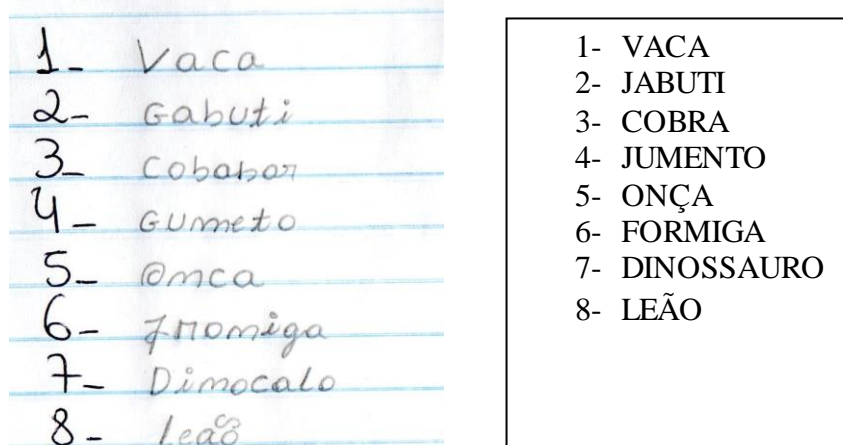 1- Vaca
2- Gabuti
3- Cobabor
4- Gumeto
5- Omca
6- Fromiga
7- Dimocalo
8- leão
1- VACA
2- JABUTI
3- COBRA
4- JUMENTO
5- ONÇA
6- FORMIGA
7- DINOSSAURO
8- LEÃO